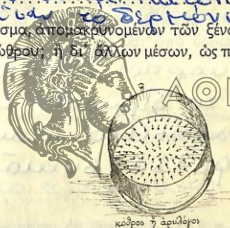 το δερμόνι
σμα, ἀπομακρυνομένων τῶν ξένω
ώθρου; ἢ δι' ἄλλων μέσων, ὡς π
ΑΘ
κόθρος ἢ ἀριλόγος